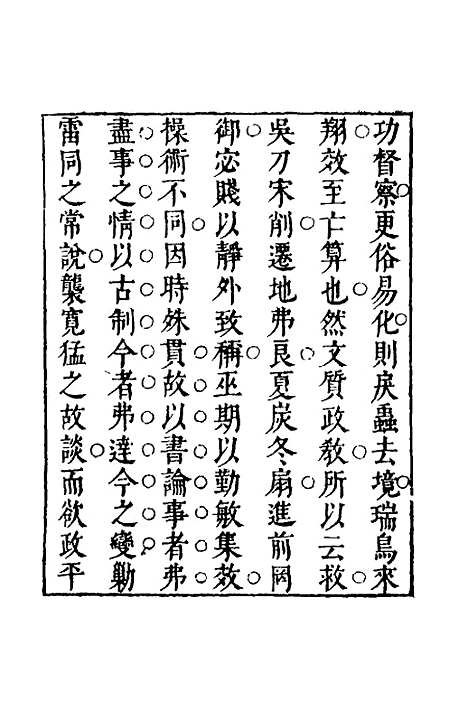 功督察更俗易化則戾蟲去境瑞鳥來
翔效至亡算也然文質政教所以云救
吳刀宋削遷地弗良夏炭冬扇進前罔
御宓賤以靜外致稱巫期以勤敏集效
操術不同因時殊貫故以書論事者弗
盡事之情以古制今者弗達今之變勦
雷同之常說襲寬猛之故談而欲政平